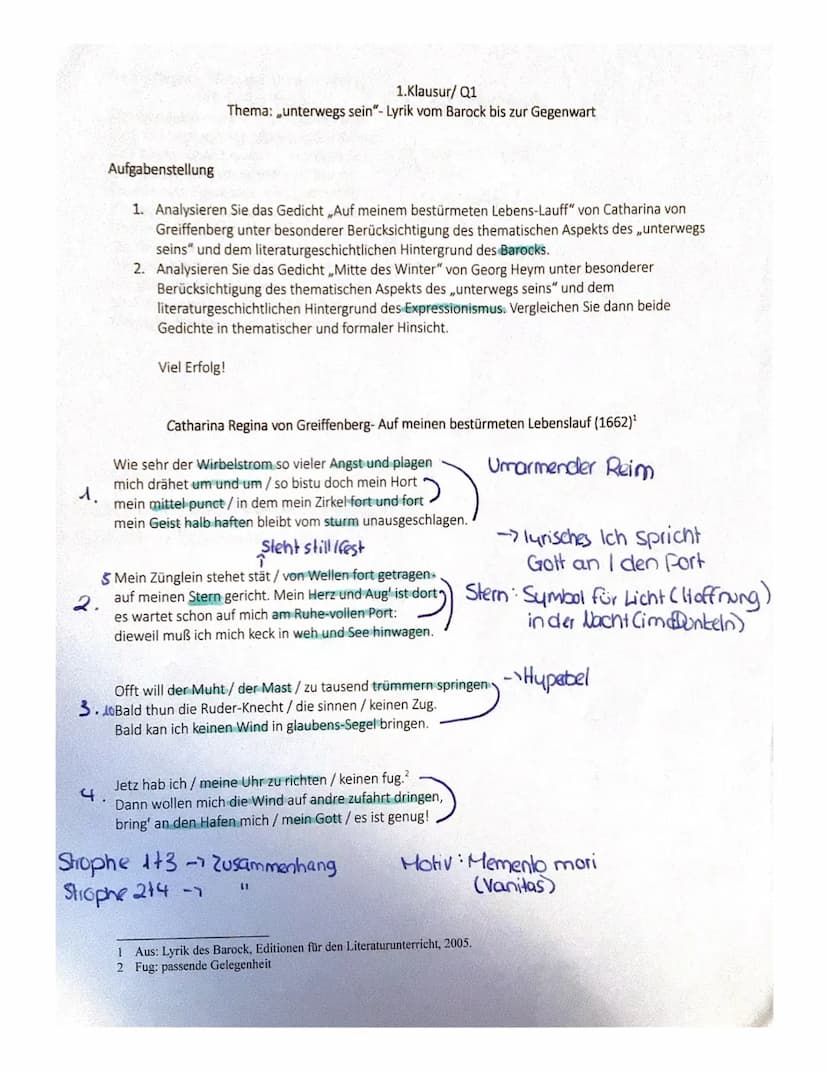 1.Klausur/ Q1
Thema: „unterwegs sein"- Lyrik vom Barock bis zur Gegenwart
Aufgabenstellung
1. Analysieren Sie das Gedicht „Auf meinem bestürmeten Lebens-Lauff" von Catharina von
Greiffenberg unter besonderer Berücksichtigung des thematischen Aspekts des „unterwegs
seins" und dem literaturgeschichtlichen Hintergrund des Barocks.
2. Analysieren Sie das Gedicht „Mitte des Winter" von Georg Heym unter besonderer
Berücksichtigung des thematischen Aspekts des „unterwegs seins" und dem
literaturgeschichtlichen Hintergrund des Expressionismus. Vergleichen Sie dann beide
Gedichte in thematischer und formaler Hinsicht.
Viel Erfolg!
Catharina Regina von Greiffenberg- Auf meinen bestürmeten Lebenslauf (1662)¹
Wie sehr der Wirbelstrom so vieler Angst und plagen
Umarmender Reim
1. mich drähet um und um / so bistu doch mein Hort
mein mittel punct / in dem mein Zirkel fort und fort
mein Geist halb haften bleibt vom sturm unausgeschlagen.
-> lyrisches Ich spricht
Gott an / den Port
Steht still / fest
5 Mein Zünglein stehet stät / von Wellen fort getragen
2. auf meinen Stern gericht. Mein Herz und Aug' ist dort
Stern: Symbol für Licht (Hoffnung)
in der Nacht (im Dunkeln)
es wartet schon auf mich am Ruhe-vollen Port:
dieweil muß ich mich keck in weh und See hinwagen.
Offt will der Muht / der Mast / zu tausend trümmern springen
-> Hyperbel
3. 10 Bald thun die Ruder-Knecht / die sinnen / keinen Zug.
Bald kan ich keinen Wind in glaubens-Segel bringen.
Jetz hab ich / meine Uhr zu richten / keinen fug.²
4. Dann wollen mich die Wind auf andre zufahrt dringen,
bring' an den Hafen mich / mein Gott / es ist genug!
Strophe 1+3 -> Zusammenhang
Strophe 2+4 -> "
Motiv: Memento mori
(Vanitas)
1 Aus: Lyrik des Barock, Editionen für den Literaturunterricht, 2005.
2 Fug: passende Gelegenheit